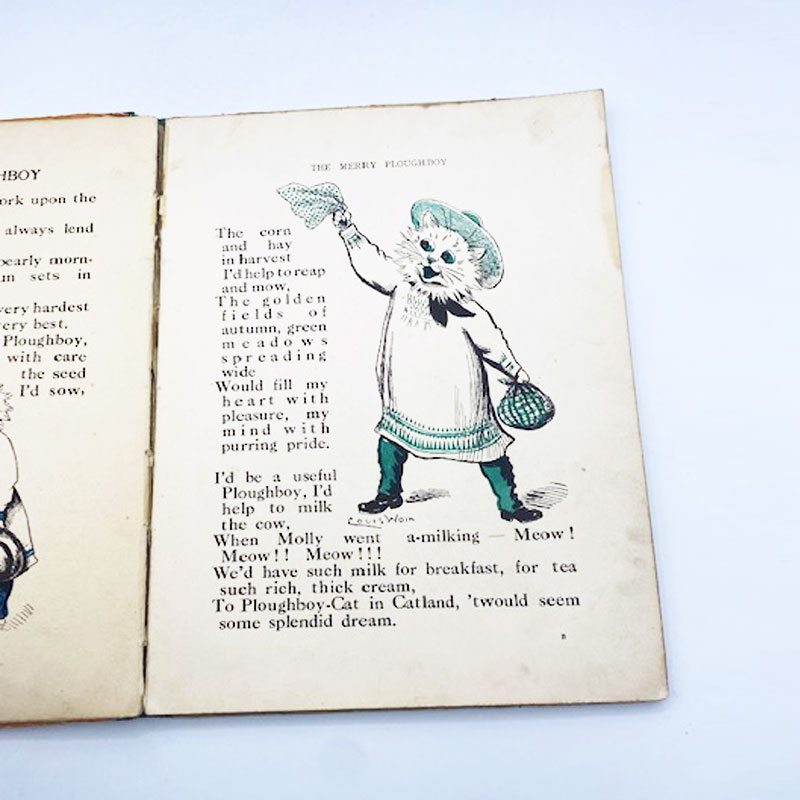 HBOY
ork upon the
always lend
pearly morn-
un sets in
very hardest
very best.
Ploughboy,
with care
the seed
I'd sow,
THE MERRY PLOUGHBOY
The corn
and hay
in harvest
I'd help to reap
and mow,
The golden
fields of
autumn, green
meadows
spreading
wide
Would fill my
heart with
pleasure, my
mind with
purring pride.
I'd be a useful
Ploughboy, I'd
help to milk
the cow,
Louis Wain
When Molly went a-milking — Meow!
Meow!! Meow!!!
We'd have such milk for breakfast, for tea
such rich, thick cream,
To Ploughboy-Cat in Catland, 'twould seem
some splendid dream.
B